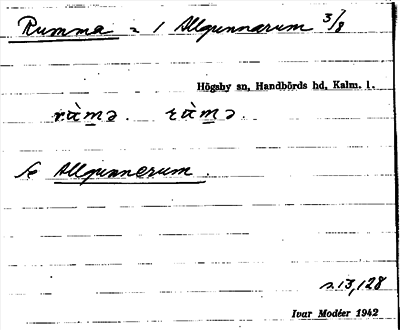 Rumma = 1 Allgunnarum 3/8
Högsby sn, Handbörds hd, Kalm. l.
rùmə. rùmə.
Se Allgunnerum.
s. 13, 128
Ivar Modéer 1942